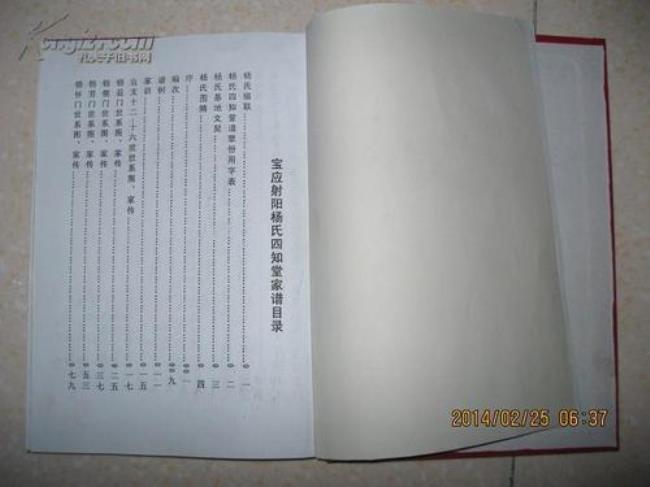 宝应射阳杨氏四知堂家谱目录
杨氏楹联……0一
杨氏四知堂谱辈份用字表……0二
杨氏基地文契……0三
杨氏图腾……0四
序……00一
编次……00九
谱例……0一一
家训……0一五
右支十二—十六世世系图、家传……0一七
杨益门世系图、家传……0二五
杨门世系图、家传……0三七
杨门世系图、家传……0五三
杨怀门世系图、家传……0七九
Kongfz.com
孔夫子旧书网
2014/02/25 06:37